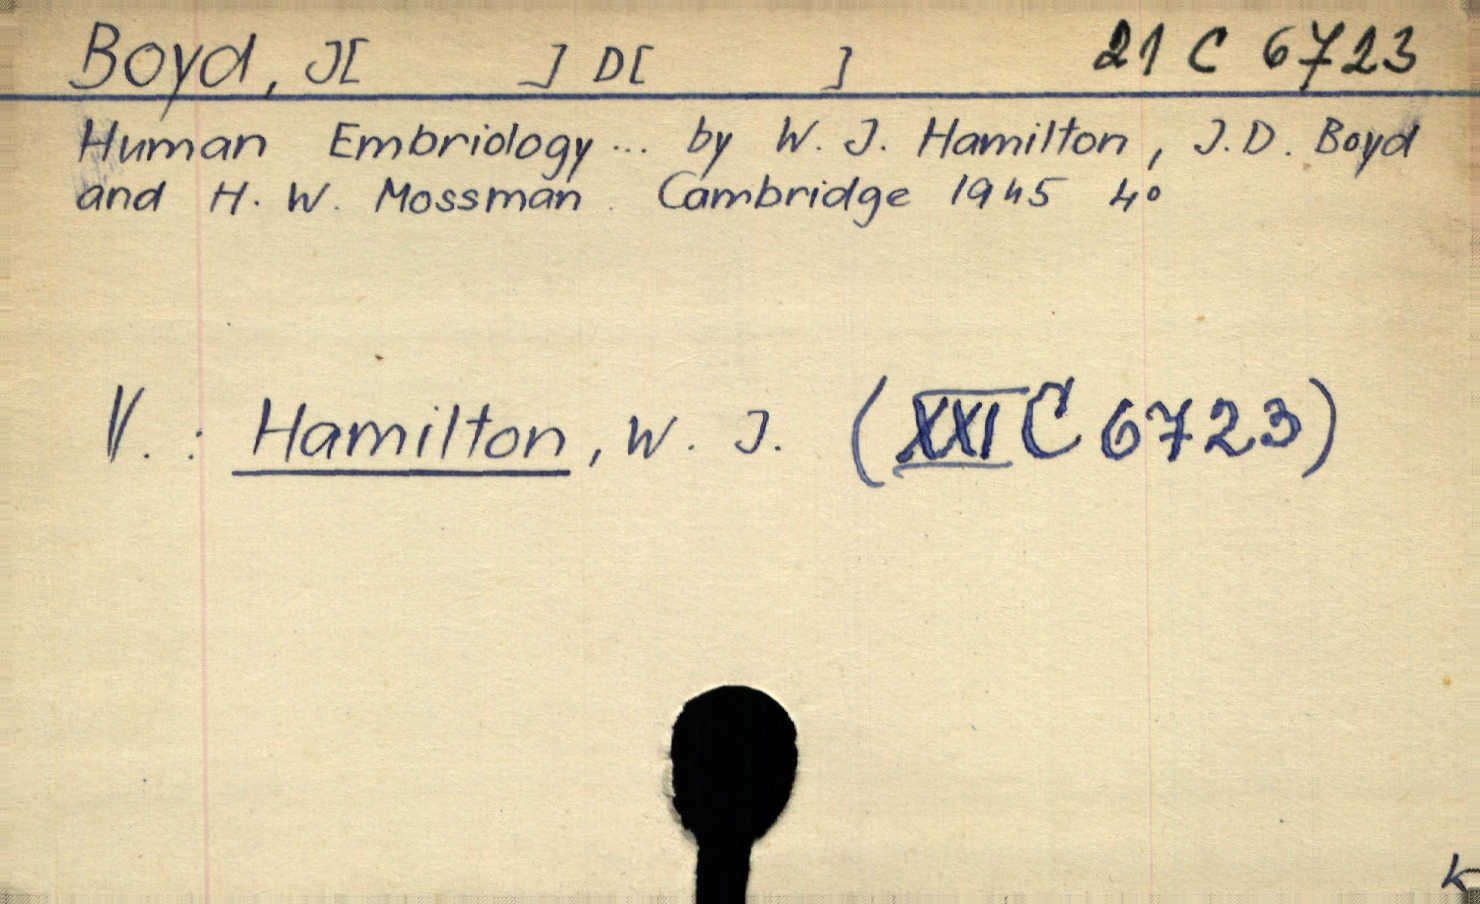 Boyd, J[ ] D[ ] 21 C 6723
Human Embriology ... by W. J. Hamilton, J.D. Boyd
and H. W. Mossman. Cambridge 1945 4°
V. : Hamilton, W. J. (XXI C 6723)
k